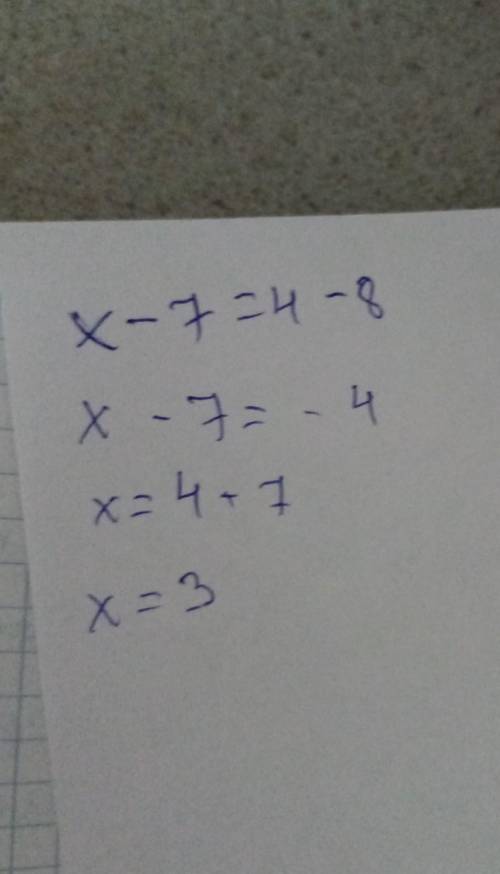 x - 7 = 4 - 8
x - 7 = - 4
x = 4 + 7
x = 3